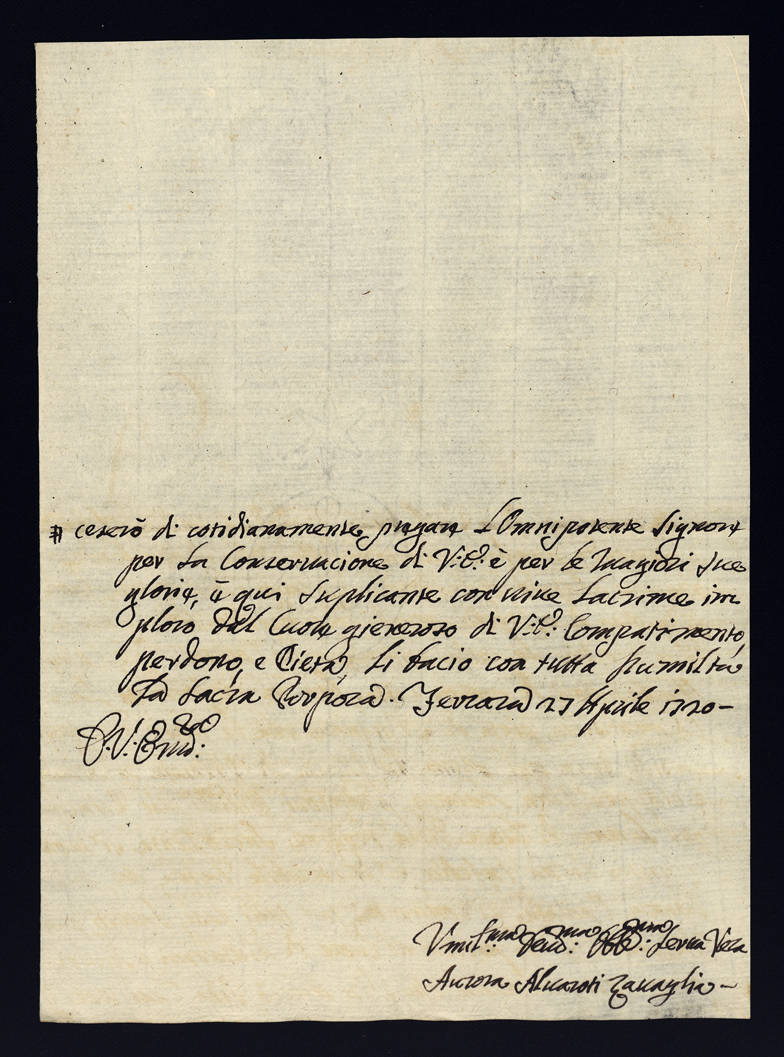 # ceserò di cotidianamente pregare l'Omnipotente Signore
per La Conservacione di V: E: è per le magiori sue
glorie, è qui suplicante con vive Lacrime im
ploro dal Cuore gieneroso di V: E: Compatimento,
perdono, e Pietà, Li bacio con tutta humiltà
La Sacra Porpora. Ferrara 27 Aprile 1720 –
D. V: Em:
Umil:ma Deu:ma Obb:ma Serva Vera
Aurora Alvaroti Zavaglia –